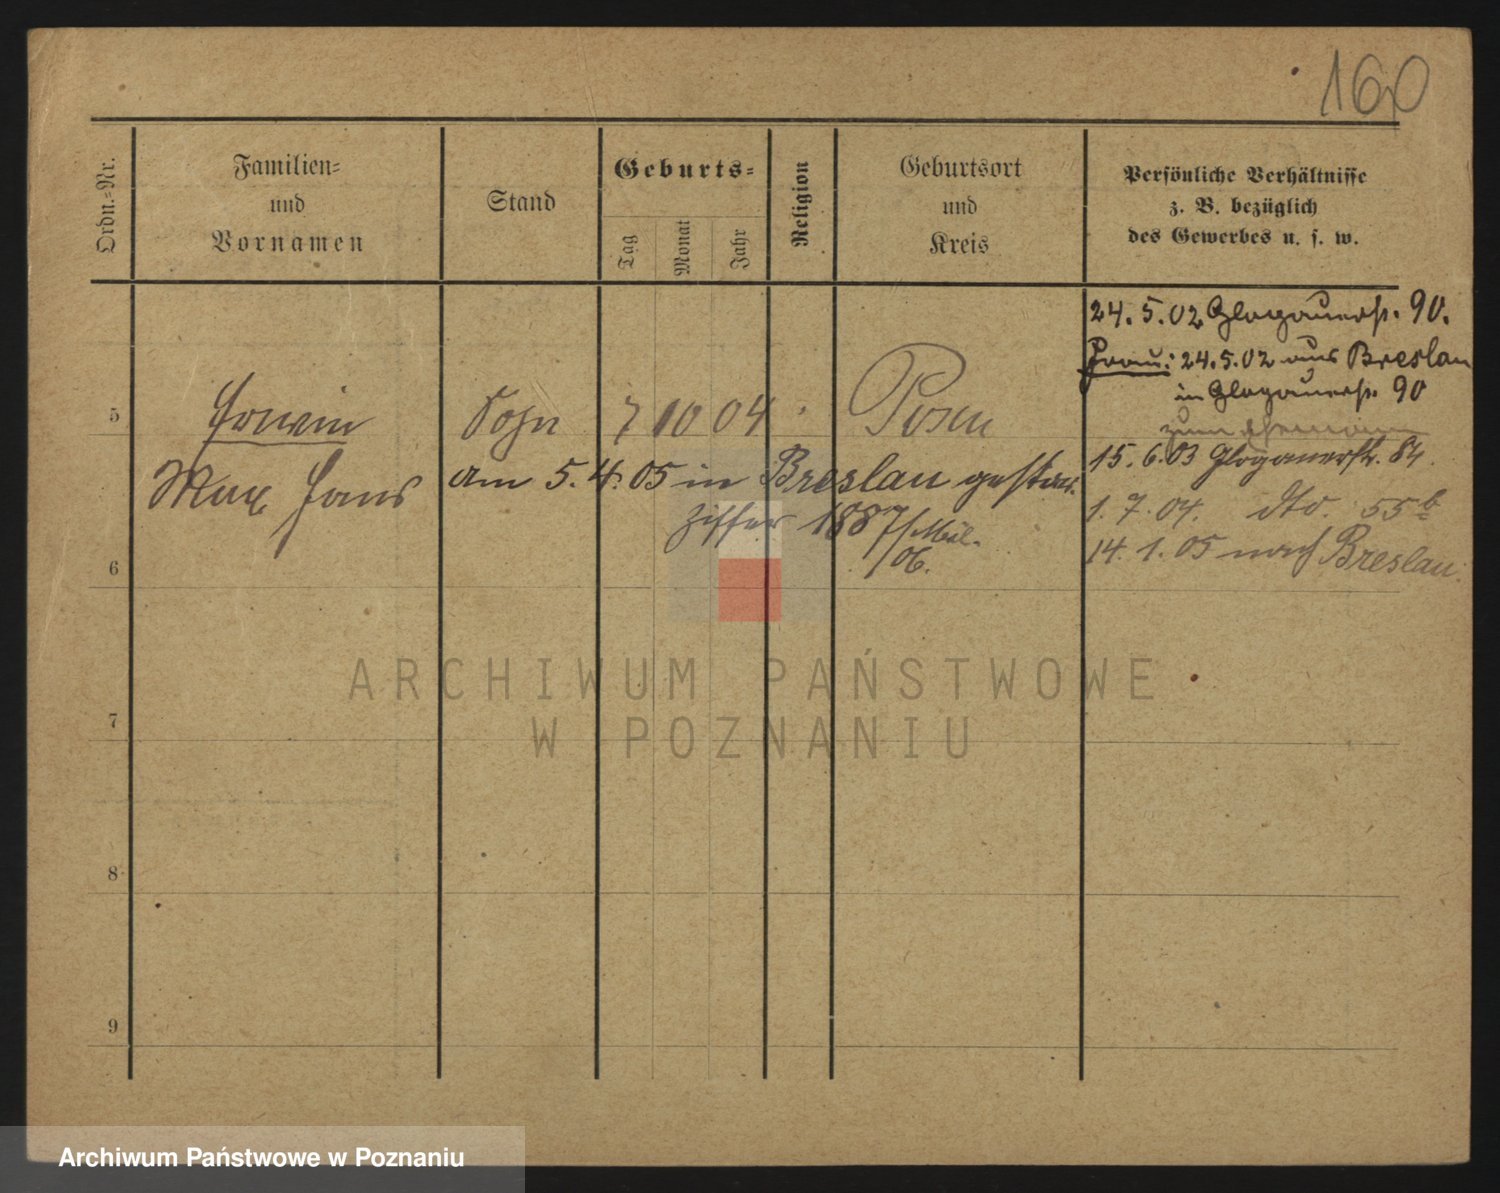 160
Ordn.-Nr.
Familien-
und
Vornamen
Stand
Geburts-
Tag
Monat
Jahr
Religion
Geburtsort
und
Kreis
Persönliche Verhältnisse
z. B. bezüglich
des Gewerbes u. s. w.
24. 5. 02 Glogauerstr. 90.
Frau: 24. 5. 02 aus Breslau
in Glogauerstr. 90
zum Ehemann
15. 6. 03 Glogauerstr. 84.
1. 7. 04. dto. 55b
14. 1. 05 nach Breslau.
5 Erwin Sohn 7 10 04 Posen
Max Hans am 5. 4. 05 in Breslau gestor.
Ziffer 1887/Mil.
06.
6
7
8
9
ARCHIWUM PAŃSTWOWE
W POZNANIU
Archiwum Państwowe w Poznaniu